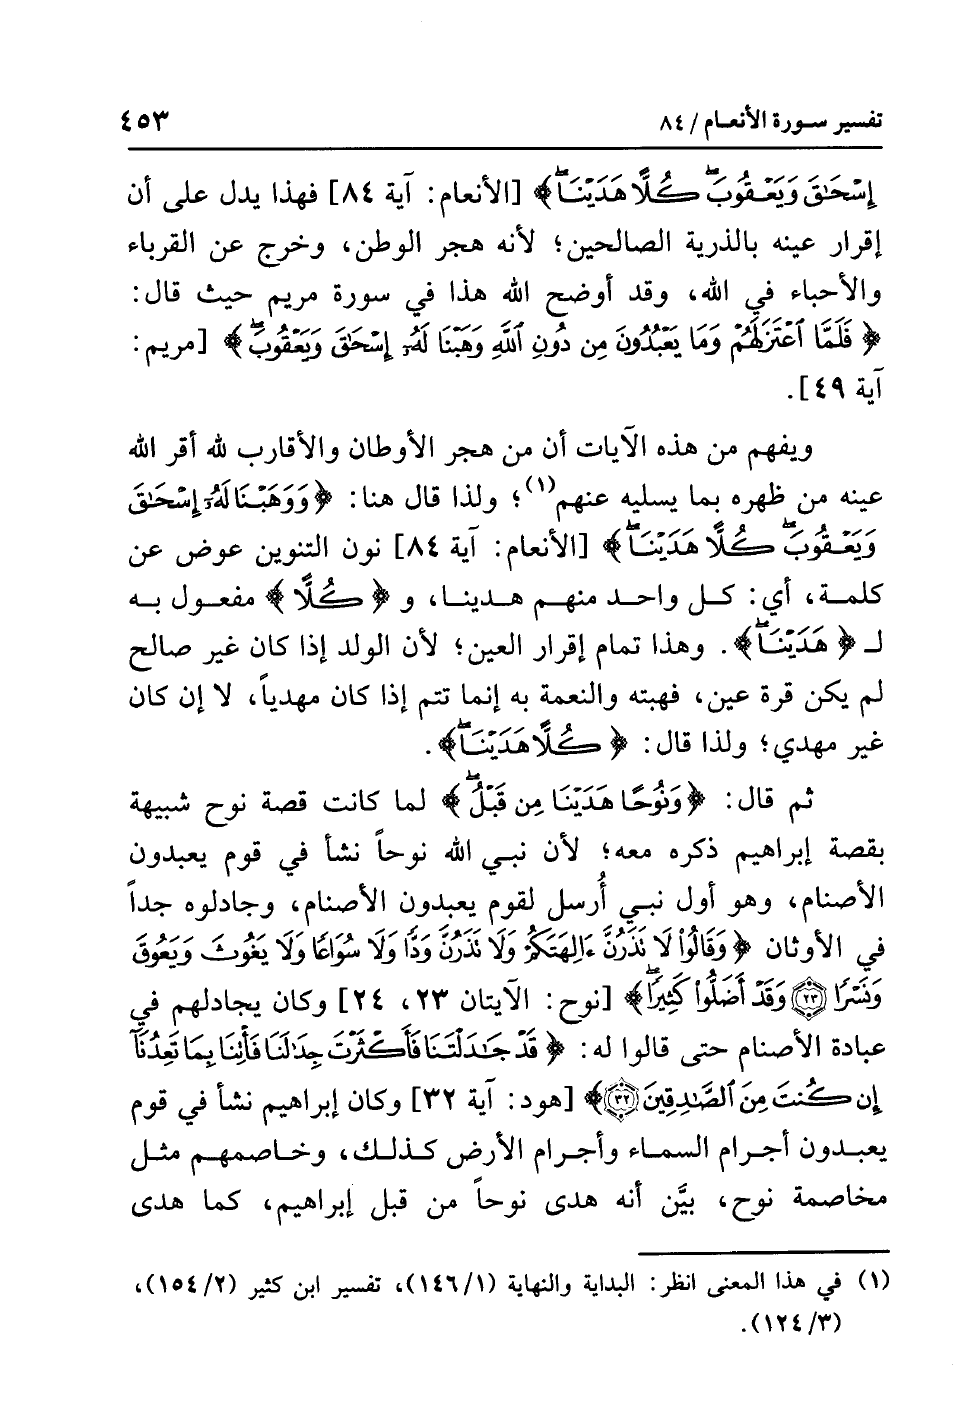 تفسير سورة الأنعام / ٨٤
٤٥٣
إِسْحَٰقَ وَيَعْقُوبَ ۚ كُلًّا هَدَيْنَا ۚ﴾ [الأنعام: آية ٨٤] فهذا يدل على أن
إقرار عينه بالذرية الصالحين؛ لأنه هجر الوطن، وخرج عن القرباء
والأحباء في الله، وقد أوضح الله هذا في سورة مريم حيث قال:
﴿فَلَمَّا ٱعْتَزَلَهُمْ وَمَا يَعْبُدُونَ مِن دُونِ ٱللَّهِ وَهَبْنَا لَهُۥٓ إِسْحَٰقَ وَيَعْقُوبَ ۖ﴾ [مريم:
آية ٤٩].
ويفهم من هذه الآيات أن من هجر الأوطان والأقارب لله أقر الله
عينه من ظهره بما يسليه عنهم(١)؛ ولذا قال هنا: ﴿وَوَهَبْنَا لَهُۥٓ إِسْحَٰقَ
وَيَعْقُوبَ ۚ كُلًّا هَدَيْنَا ۚ﴾ [الأنعام: آية ٨٤] نون التنوين عوض عن
كلمة، أي: كل واحد منهم هدينا، و ﴿كُلًّا﴾ مفعول به
لـ ﴿هَدَيْنَا ۚ﴾. وهذا تمام إقرار العين؛ لأن الولد إذا كان غير صالح
لم يكن قرة عين، فهبته والنعمة به إنما تتم إذا كان مهدياً، لا إن كان
غير مهدي؛ ولذا قال: ﴿كُلًّا هَدَيْنَا ۚ﴾.
ثم قال: ﴿وَنُوحًا هَدَيْنَا مِن قَبْلُ ۖ﴾ لما كانت قصة نوح شبيهة
بقصة إبراهيم ذكره معه؛ لأن نبي الله نوحاً نشأ في قوم يعبدون
الأصنام، وهو أول نبي أُرسل لقوم يعبدون الأصنام، وجادلوه جداً
في الأوثان ﴿وَقَالُوا۟ لَا تَذَرُنَّ ءَالِهَتَكُمْ وَلَا تَذَرُنَّ وَدًّا وَلَا سُوَاعًا وَلَا يَغُوثَ وَيَعُوقَ
وَنَسْرًا ۝٢٣ وَقَدْ أَضَلُّوا۟ كَثِيرًا ۖ﴾ [نوح: الآيتان ٢٣، ٢٤] وكان يجادلهم في
عبادة الأصنام حتى قالوا له: ﴿قَدْ جَٰدَلْتَنَا فَأَكْثَرْتَ جِدَٰلَنَا فَأْتِنَا بِمَا تَعِدُنَآ
إِن كُنتَ مِنَ ٱلصَّٰدِقِينَ ۝٣٢﴾ [هود: آية ٣٢] وكان إبراهيم نشأ في قوم
يعبدون أجرام السماء وأجرام الأرض كذلك، وخاصمهم مثل
مخاصمة نوح، بيَّن أنه هدى نوحاً من قبل إبراهيم، كما هدى
(١) في هذا المعنى انظر: البداية والنهاية (١/١٤٦)، تفسير ابن كثير (٢/١٥٤)،
(٣/١٢٤).